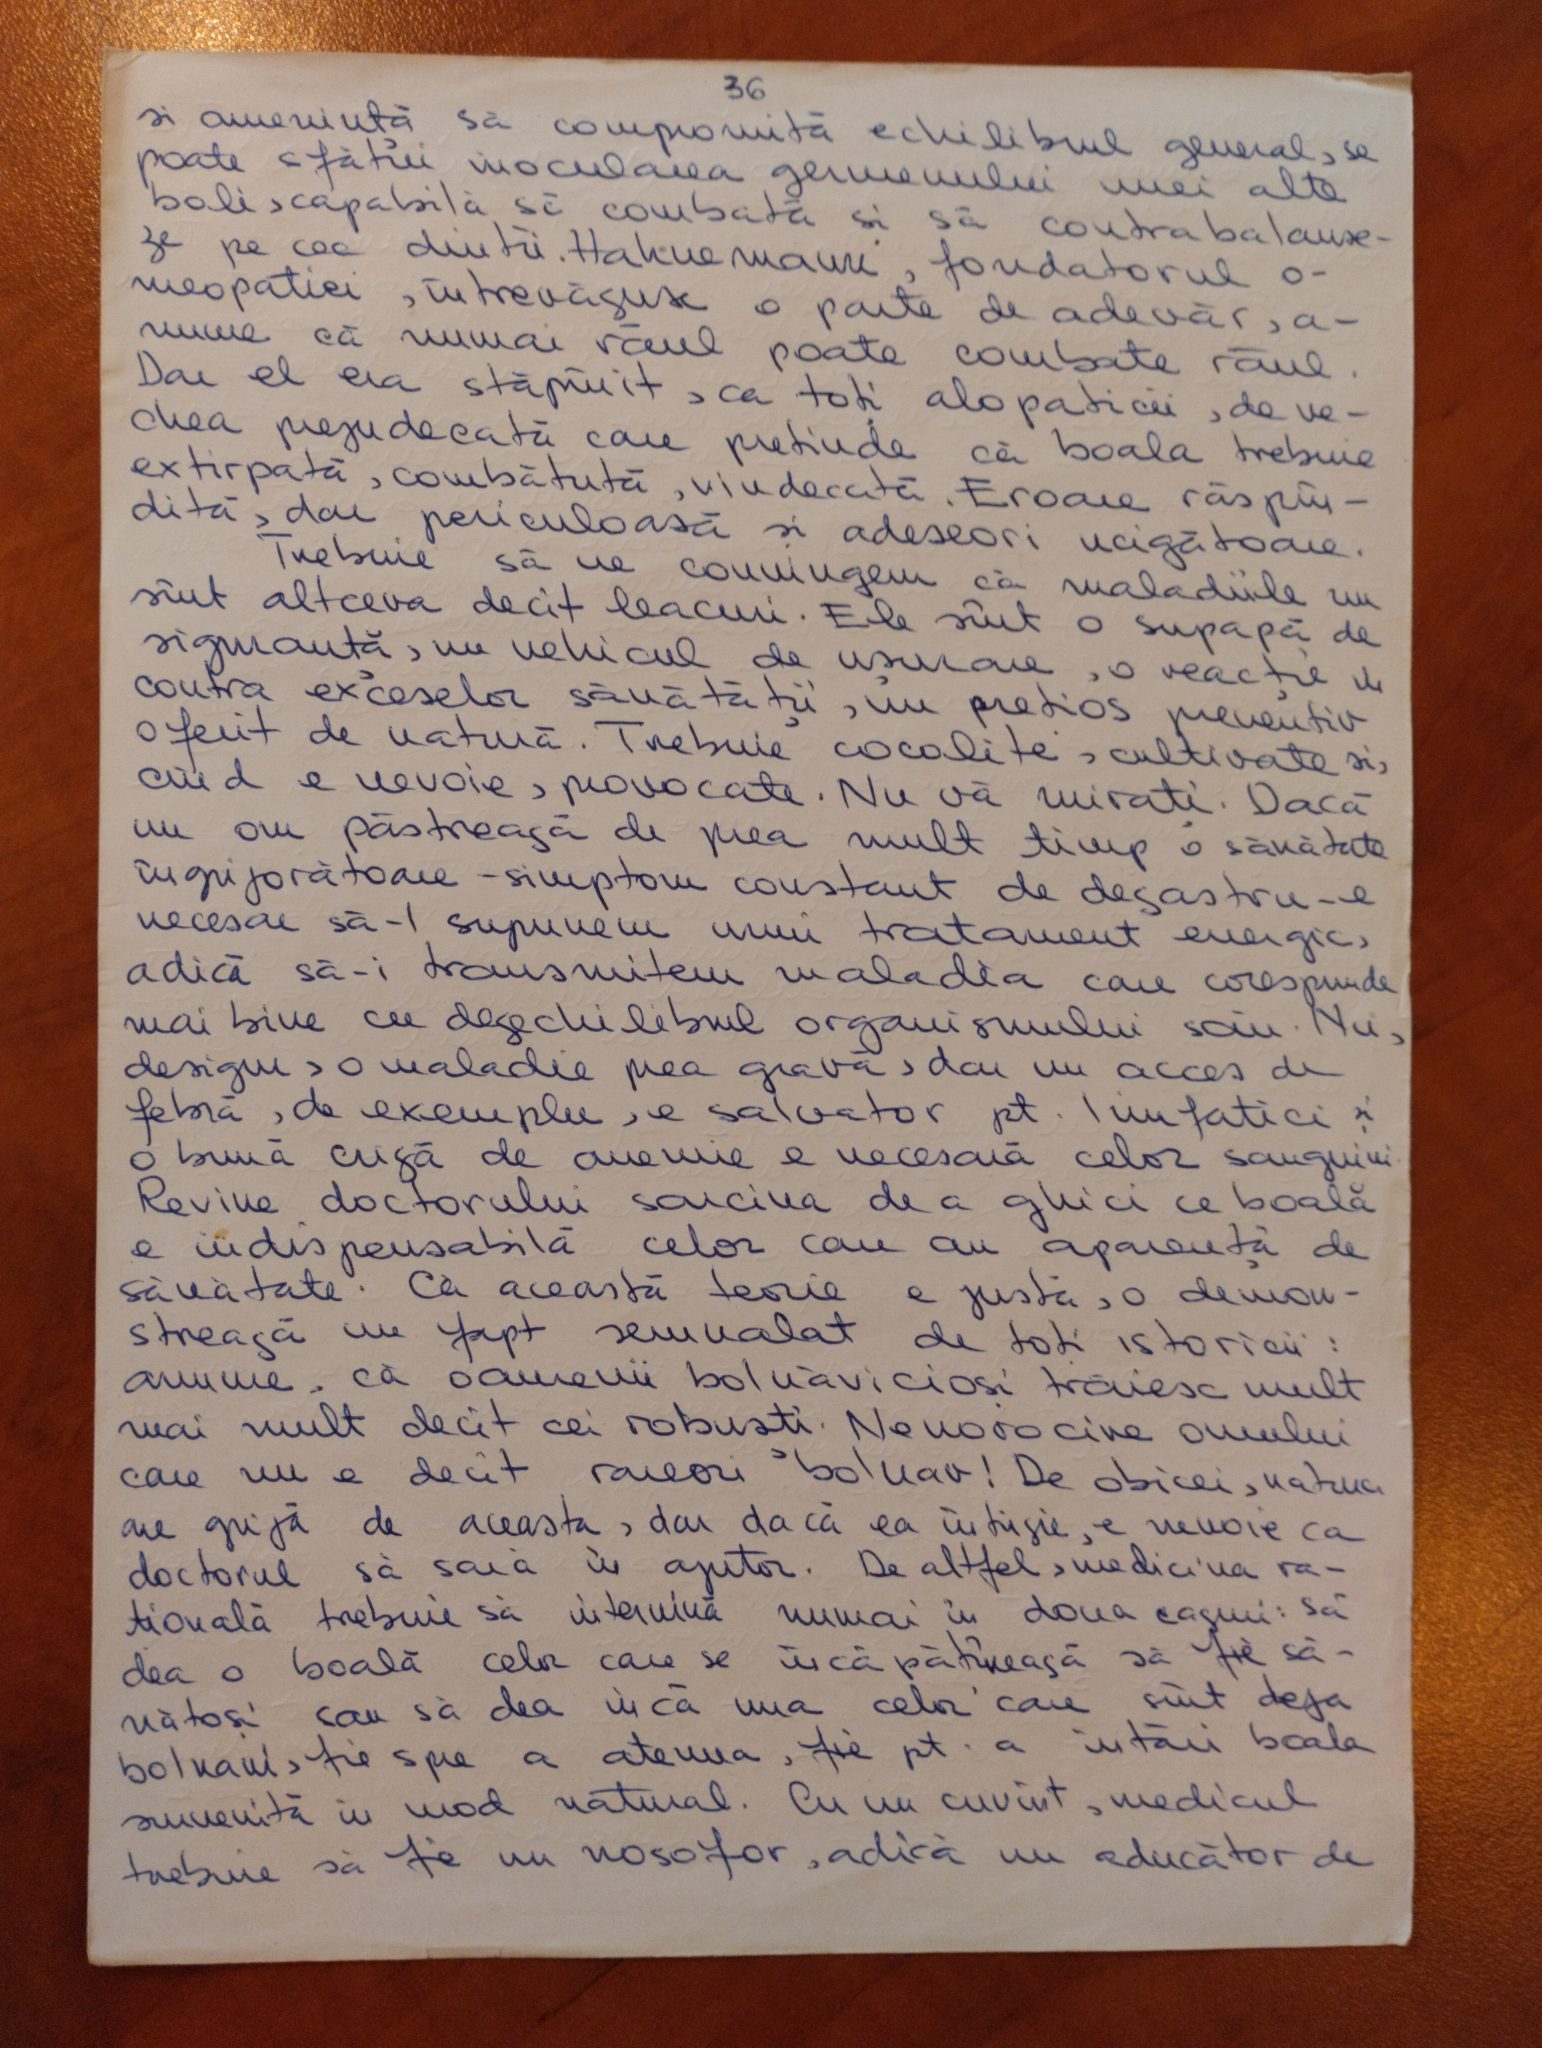 36
si amenință să compromită echilibrul general, se
poate sfătui inocularea germenului unei alte
boli, capabilă să combată și să contrabalanse-
ze pe cea dintîi. Hahnemann, fondatorul o-
meopatiei, întrevăzuse o parte de adevăr, a-
nume că numai răul poate combate răul.
Dar el era stăpînit, ca toți alopaticii, de ve-
chea prejudecată care pretinde că boala trebuie
extirpată, combătută, vindecată. Eroare răspîn-
dită, dar periculoasă și adeseori ucigătoare.
Trebuie să ne convingem că maladiile nu
sînt altceva decît leacuri. Ele sînt o supapă de
siguranță, un vehicul de ușurare, o reacție în
contra exceselor sănătății, un prețios preventiv
oferit de natură. Trebuie cocolite, cultivate si,
cînd e nevoie, provocate. Nu vă mirați. Dacă
un om păstrează de prea mult timp o sănătate
îngrijorătoare - simptom constant de dezastru - e
necesar să-l supunem unui tratament energic,
adică să-i transmitem maladia care corespunde
mai bine cu dezechilibrul organismului său. Nu,
desigur, o maladie prea gravă, dar un acces de
febră, de exemplu, e salvator pt. limfatici și
o bună criză de anemie e necesară celor sanguini.
Revine doctorului sarcina de a ghici ce boală
e indispensabilă celor care au aparență de
sănătate. Că această teorie e justă, o demon-
strează un fapt semnalat de toți istoricii:
anume, că oamenii bolnăvicioși trăiesc mult
mai mult decît cei robuști. Nenorocire omului
care nu e decît rareori bolnav! De obicei, natura
are grijă de aceasta, dar dacă ea întîrzie, e nevoie ca
doctorul să sară în ajutor. De altfel, medicina ra-
țională trebuie să intervină numai în doua cazuri: să
dea o boală celor care se încăpățînează să fie să-
nătoși sau să dea încă una celor care sînt deja
bolnavi, fie spre a atenua, fie pt. a întări boala
survenită în mod natural. Cu un cuvînt, medicul
trebuie să fie un nosofor, adică un educător de